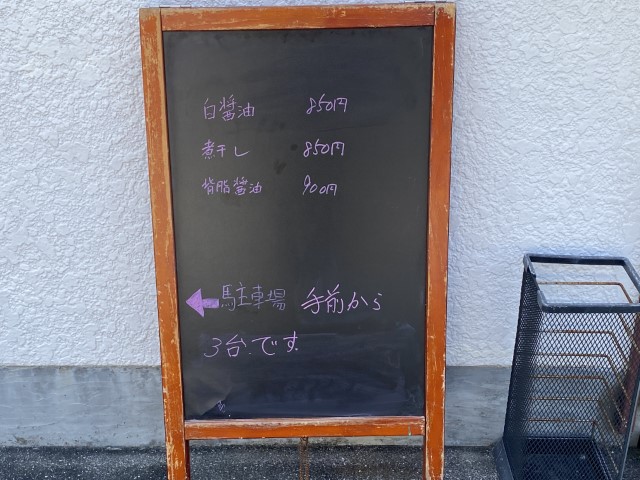 白醤油 850円
煮干し 850円
背脂醤油 900円
←駐車場 手前から
3台です